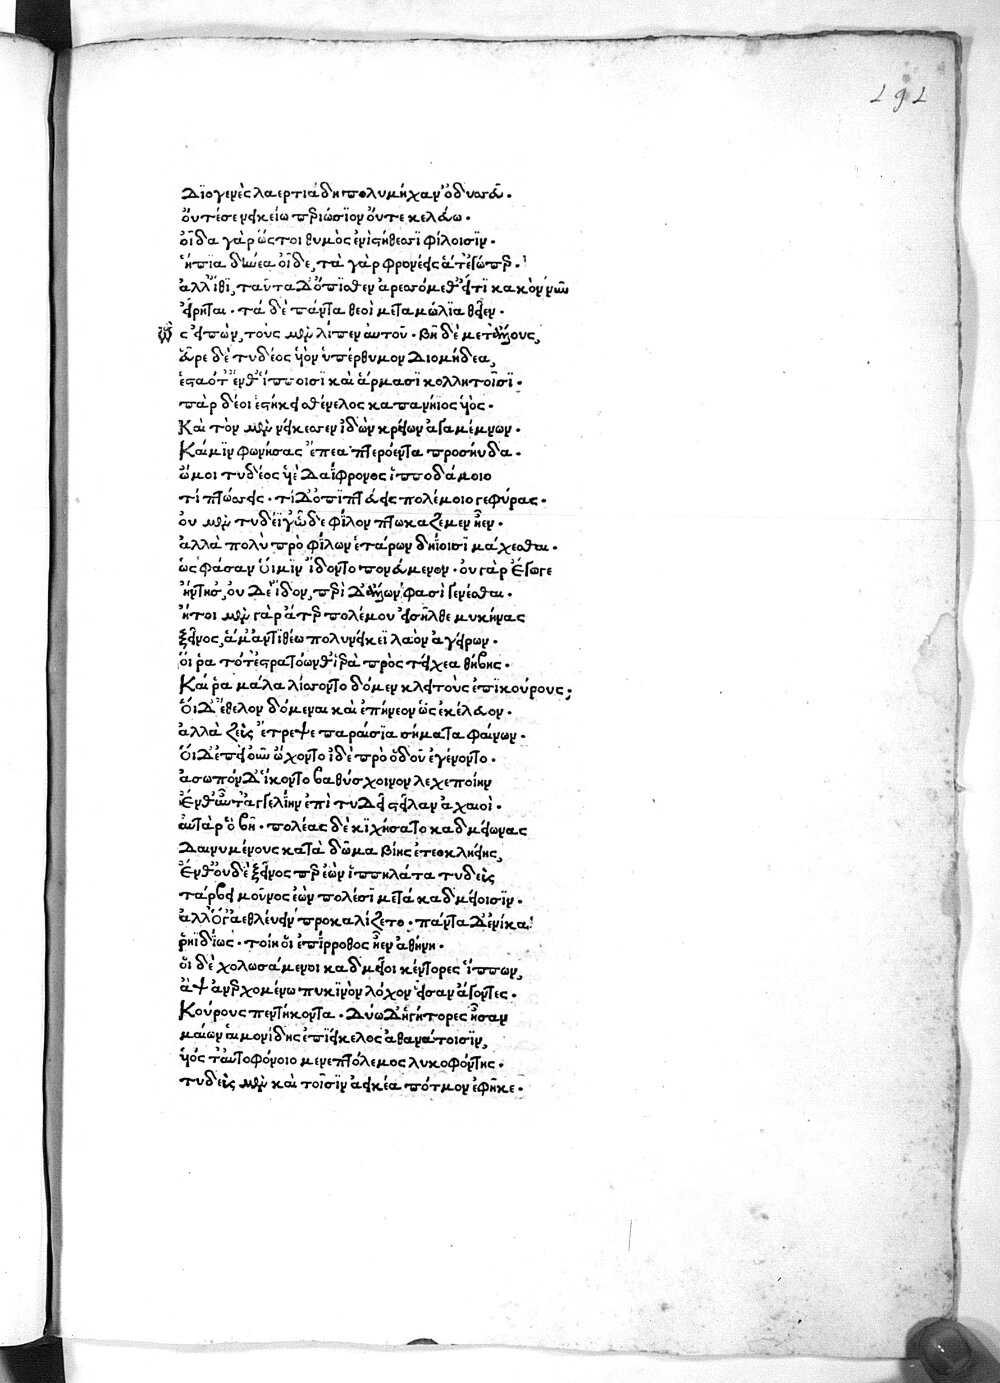 ι9ι
Διογενὲς λαερτιάδη πολυμήχαν' ὀδυσσεῦ.
ὄυτέ σε νεικείω περιώσϊον ὄυτε κελεύω.
οἶδα γὰρ ὥς τοι θυμὸς ἐνὶ στήθεσϊ φίλοισϊν.
ἤπϊα δήνεα οἶδε, τὰ γὰρ φρονέεις ἅ τ' ἐγώ περ.
ἀλλ' ἴθι, ταῦτα δ' ὄπϊσθεν ἀρεσόμεθ' εἴ τϊ κακὸν νῦν
εἴρηται. τά δὲ πάντα θεοὶ μεταμώλϊα θεῖεν.
ὣς εἰπὼν, τοὺς μὲν λίπεν ἀυτοῦ. βῆ δὲ μετ' ἄλλους,
εὗρε δὲ τυδέος ὑϊὸν ὑπέρθυμον Διομήδεα,
ἑσταότ' ἔνθ' ἵπποισϊ καὶ ἅρμασϊ κολλητοῖσϊ.
πὰρ δέ οι ἑστήκει σθένελος καπανήϊος ὑιός.
Καὶ τὸν μὲν νείκεσσεν ϊδὼν κρείων ἀγαμέμνων.
Καί μϊν φωνήσας ἔπεα πτερόεντα προσηύδα.
ὤμοι τυδέος ὑϊὲ Δαΐφρονος ἱπποδάμοιο
τί πτώσσεις. τί δ' ὀπϊπτεύεις πολέμοιο γεφύρας.
ου μὲν τυδέϊ γ' ὧδε φΐλον πτωκαζέμεν ἦεν.
ἀλλὰ πολὺ πρὸ φΐλων ἑτάρων δηΐοισϊ μάχεσθαι.
ὡς φάσαν ὅι μϊν ἴδοντο πονεύμενον. ὀυ γὰρ ἔγωγε
ἤντησ', ὀυ δὲ ἴδον, περὶ δ' ἄλλων φασὶ γενέσθαι.
ἤτοι μὲν γὰρ ἄτερ πολέμου εἰσῆλθε μυκήνας
ξεῖνος, ἅμ' ἀντϊθέω πολυνείκεϊ λαὸν ἀγείρων.
ὅι ῥα τότ' ἐστρατόωνθ' ϊερὰ πρὸς τείχεα θήβης.
Καί ῥα μάλα λίσσοντο δόμεν κλειτοὺς ἐπϊκούρους.
Ὅι δ' ἔθελον δόμεναι καὶ ἐπήνεον ὡς ἐκέλευον.
ἀλλὰ ζεὺς ἔτρεψε παραίσϊα σήματα φαίνων.
Ὅι δ' ἐπεὶ οὖν ὤχοντο ἰδὲ πρὸ ὁδοῦ ἐγένοντο.
ἀσωπὸν δ' ἵκοντο βαθύσχοινον λεχεποίην
Ἔνθ' αὖτ' ἀγγελίην ἐπὶ τυδῆ στεῖλαν ἀχαιοὶ.
ἀυτὰρ ὁ βῆ. πολέας δὲ κϊχήσατο καδμείωνας
Δαινυμένους κατὰ δῶμα βίης ἐτεοκληείης,
Ἔνθ' ὀυδὲ ξεῖνος περ ἐὼν ἱππηλάτα τυδεὺς
τάρβει μοῦνος ἐὼν πολέσϊ μετά καδμείοισϊν.
ἀλλ' ὅγ' ἀεθλέυειν προκαλίζετο. πάντα δ' ἐνίκα.
ῥηϊδΐως. τοίη ὅι ἐπΐρροθος ἦεν ἀθήνη.
ὅι δὲ χολωσάμενοι καδμεῖοι κέντορες ἵππων,
ἂψ ἀνερχομένω πυκϊνὸν λόχον εἷσαν ἄγοντες.
Κούρους πεντήκοντα. δύω δ' ἡγήτορες ἦσαν
μαίων ἁιμονίδης ἐπϊείκελος ἀθανάτοισϊν,
ὑιός τ' ἀυτοφόνοιο μενεπτόλεμος λυκοφόντης.
τυδεὺς μὲν καὶ τοῖσϊν ἀεικέα πότμον ἐφῆκε.